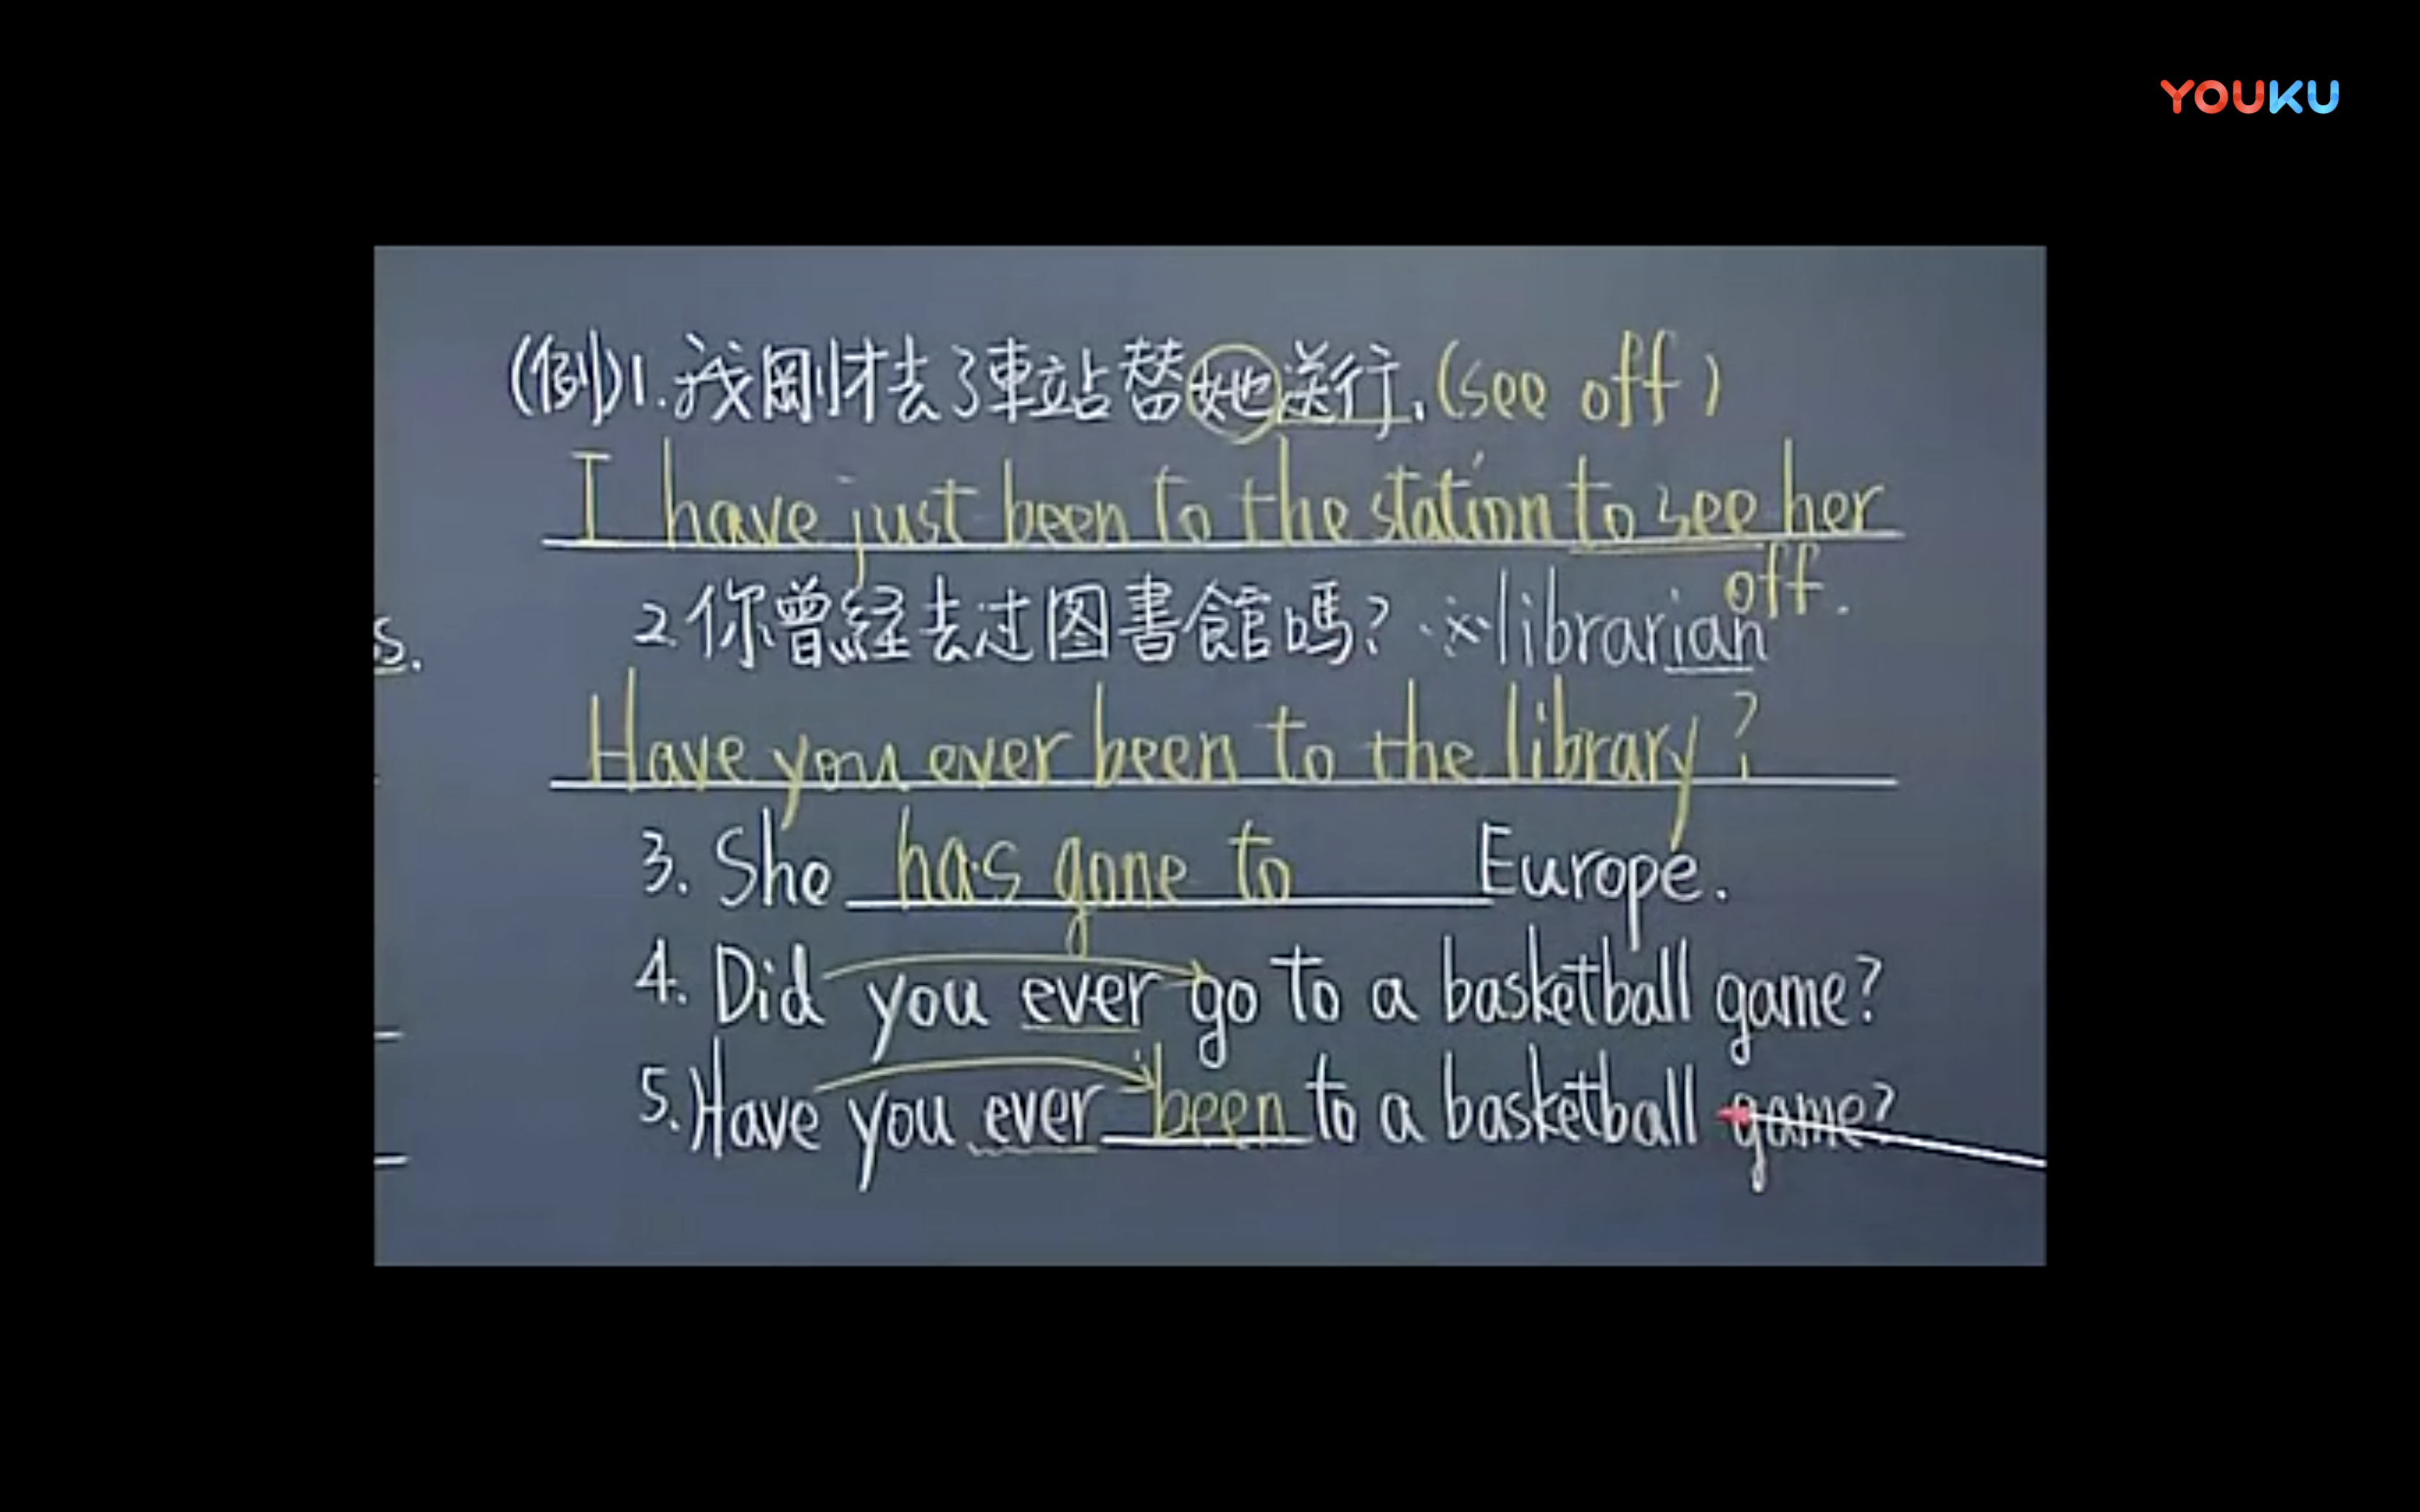 YOUKU
(例)1.我剛才去了車站替她送行.(see off)
I have just been to the station to see her
off.
2.你曾経去过图書館嗎? ※librarian
s.
Have you ever been to the library?
3. She has gone to Europe.
4. Did you ever go to a basketball game?
5. Have you ever been to a basketball game?